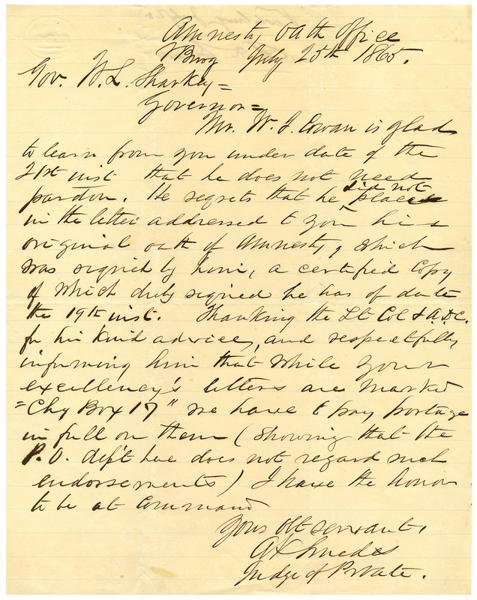 Amnesty Oath Office
VBurg July 25th 1865.
Gov. W. L. Sharkey=
Governor=
Mr. W. J. Cowan is glad
to learn from you under date of the
21st inst that he does not need
pardon. He regrets that he did not place
in the letter addressed to you his
original oath of Amnesty, which
was signed by him, a certified copy
of which duly signed he has of date
the 19th inst. Thanking the Lt Col & A.D.C.
for his kind advice, and respectfully
informing him that while your
excellency's letters are marked
"Chg Box 17" we have to pay postage
in full on them (showing that the
P.O. dept here does not regard such
endorsements) I have the honor
to be at command
Your obt servant,
Judge of Probate.